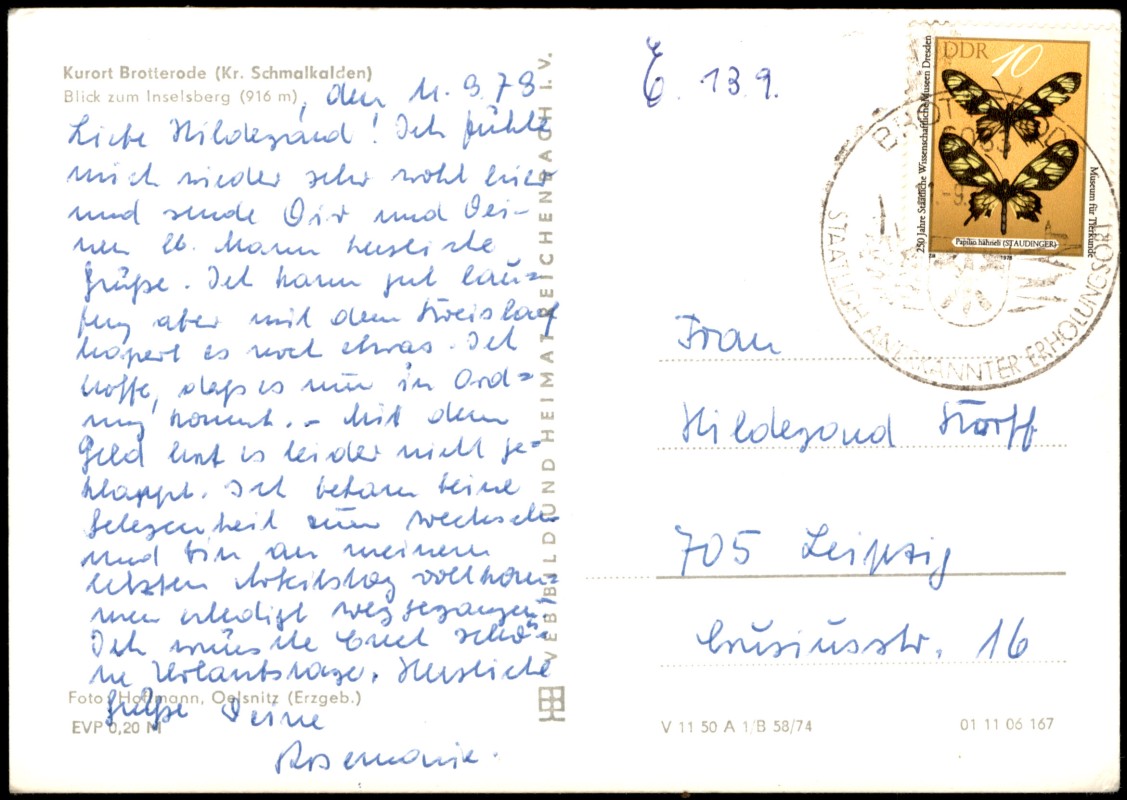 Kurort Brotterode (Kr. Schmalkalden)
Blick zum Inselsberg (916 m)
, den 11.9.79
Liebe Hildegard! Ich fühle
mich wieder sehr wohl hier
und sende Dir und Dei-
nen lb. Mann herzliche
Grüße. Ich kann gut lau=
fen, aber mit dem Kreislauf
hapert es noch etwas. Ich
hoffe, daß es nun in Ord=
nung kommt. - Mit dem
Geld hat es leider nicht ge=
klappt. Ich bekam keine
Gelegenheit zum wechseln
und bin an meinem
letzten Arbeitstag vollkom=
men erledigt weggegangen.
Ich wünsche Euch schö=
ne Urlaubstage. Herzliche
Grüße Deine
Rosemarie.
Foto: Hoffmann, Oelsnitz (Erzgeb.)
EVP 0,20 M
VEB BILD UND HEIMAT REICHENBACH I. V.
E. 13.9.
DDR 10
250 Jahre Staatliche Wissenschaftliche Museen Dresden
Museum für Tierkunde
Papilio hahneli (STAUDINGER)
1978
BROTTERODE
STAATLICH ANERKANNTER ERHOLUNGSORT
Frau
Hildegard Korff
705 Leipzig
Crusiusstr. 16
V 11 50 A 1/B 58/74
01 11 06 167